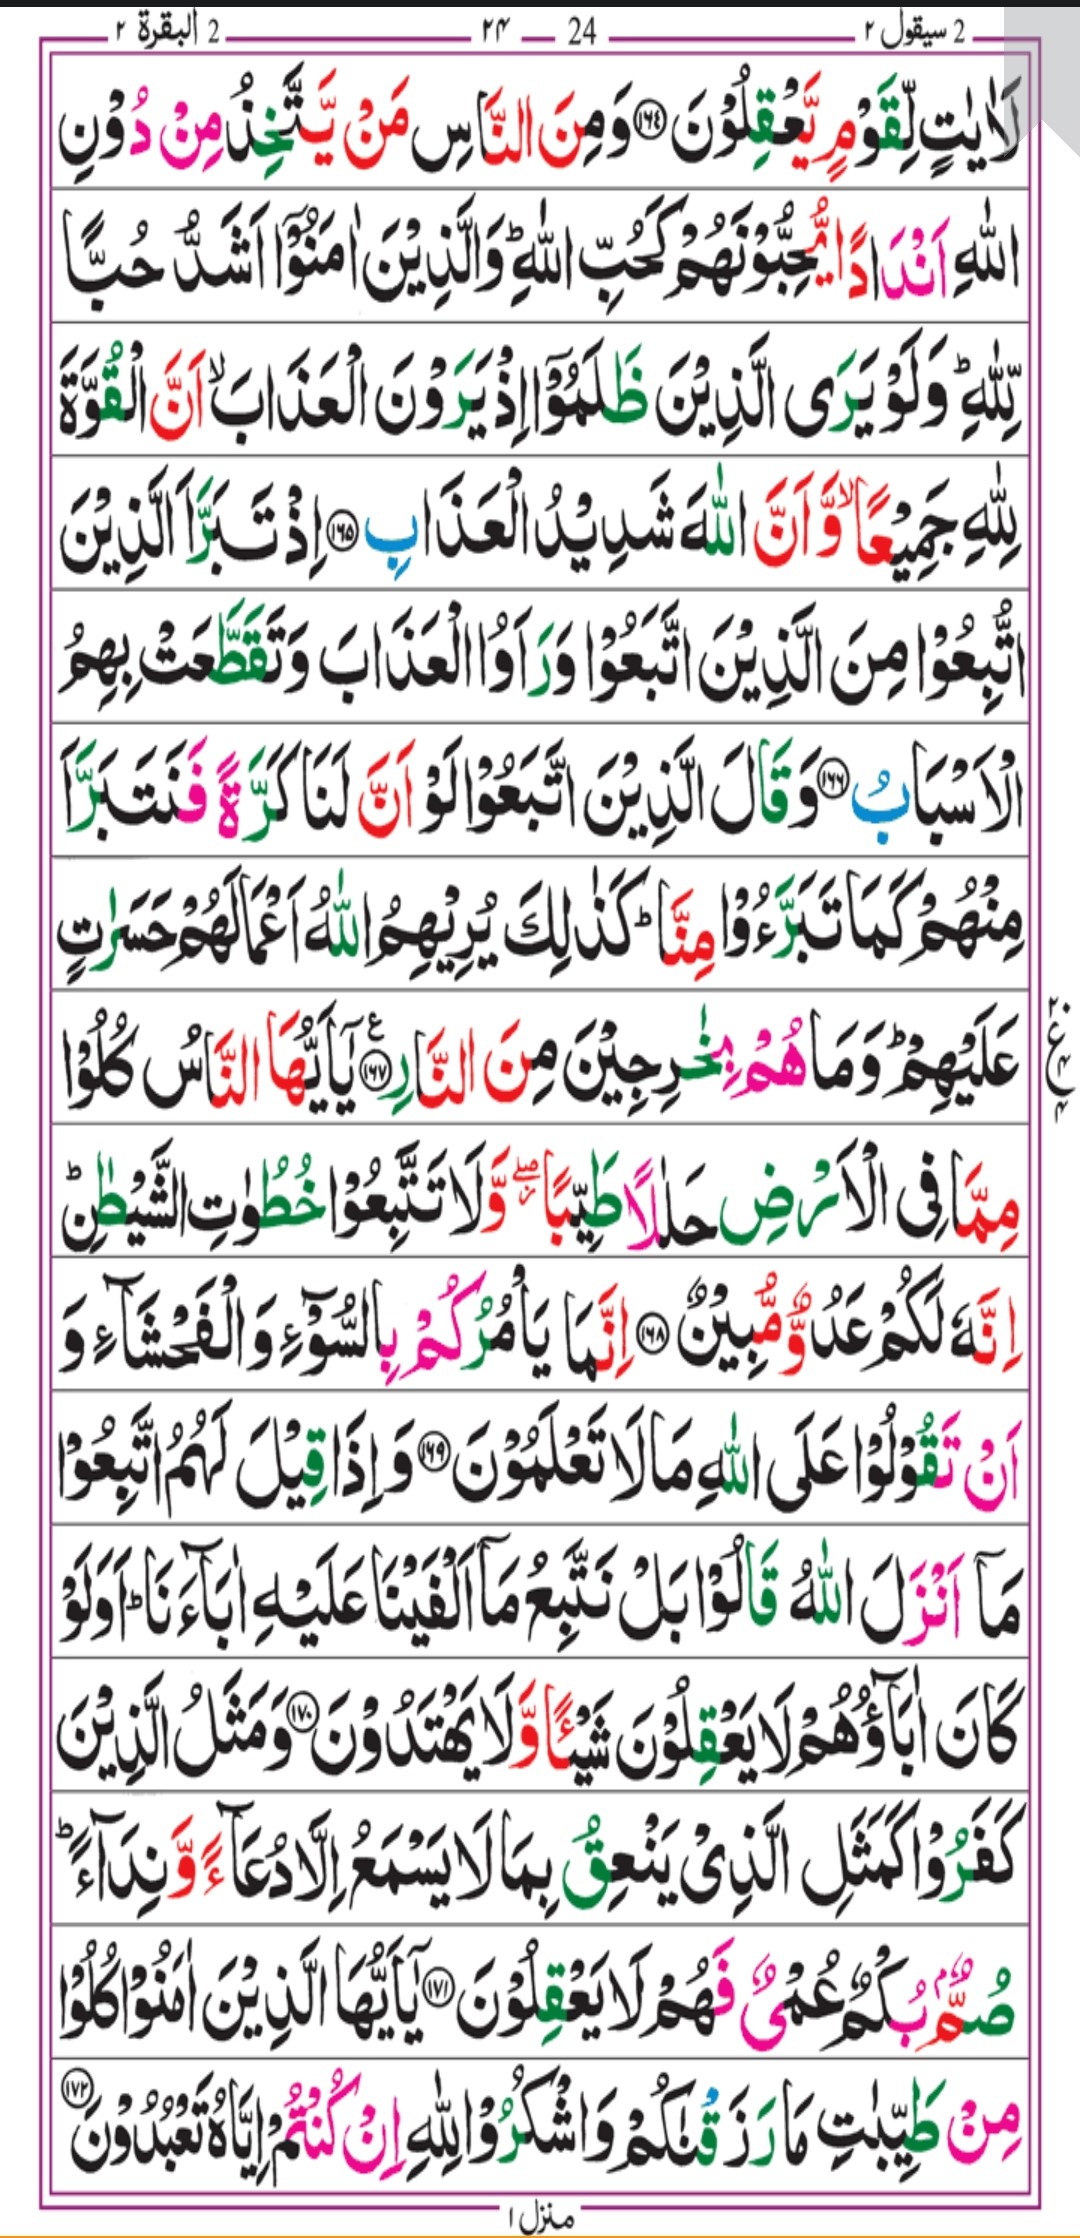 2 البقرة ٢ 24 — ٢٤ 2 سيقول ٢
لَاٰيٰتٍ لِّقَوْمٍ يَّعْقِلُوْنَ ﴿١٦٤﴾ وَمِنَ النَّاسِ مَنْ يَّتَّخِذُ مِنْ دُوْنِ
اللّٰهِ اَنْدَادًا يُّحِبُّوْنَهُمْ كَحُبِّ اللّٰهِ ؕ وَالَّذِيْنَ اٰمَنُوْۤا اَشَدُّ حُبًّا
لِّلّٰهِ ؕ وَلَوْ يَرَى الَّذِيْنَ ظَلَمُوْۤا اِذْ يَرَوْنَ الْعَذَابَ ۙ اَنَّ الْقُوَّةَ
لِلّٰهِ جَمِيْعًا ۙ وَّاَنَّ اللّٰهَ شَدِيْدُ الْعَذَابِ ﴿١٦٥﴾ اِذْ تَبَرَّاَ الَّذِيْنَ
اتُّبِعُوْا مِنَ الَّذِيْنَ اتَّبَعُوْا وَرَاَوُا الْعَذَابَ وَتَقَطَّعَتْ بِهِمُ
الْاَسْبَابُ ﴿١٦٦﴾ وَقَالَ الَّذِيْنَ اتَّبَعُوْا لَوْ اَنَّ لَنَا كَرَّةً فَنَتَبَرَّاَ
مِنْهُمْ كَمَا تَبَرَّءُوْا مِنَّا ؕ كَذٰلِكَ يُرِيْهِمُ اللّٰهُ اَعْمَالَهُمْ حَسَرٰتٍ
عَلَيْهِمْ ؕ وَمَا هُمْ بِخٰرِجِيْنَ مِنَ النَّارِ ﴿١٦٧﴾ ع يٰۤاَيُّهَا النَّاسُ كُلُوْا
٢٠ ع ٤ ٤
مِمَّا فِى الْاَرْضِ حَلٰلًا طَيِّبًا ۖ وَّلَا تَتَّبِعُوْا خُطُوٰتِ الشَّيْطٰنِ ؕ
اِنَّهٗ لَكُمْ عَدُوٌّ مُّبِيْنٌ ﴿١٦٨﴾ اِنَّمَا يَاْمُرُكُمْ بِالسُّوْٓءِ وَالْفَحْشَآءِ وَ
اَنْ تَقُوْلُوْا عَلَى اللّٰهِ مَا لَا تَعْلَمُوْنَ ﴿١٦٩﴾ وَاِذَا قِيْلَ لَهُمُ اتَّبِعُوْا
مَاۤ اَنْزَلَ اللّٰهُ قَالُوْا بَلْ نَتَّبِعُ مَاۤ اَلْفَيْنَا عَلَيْهِ اٰبَآءَنَا ؕ اَوَلَوْ
كَانَ اٰبَآؤُهُمْ لَا يَعْقِلُوْنَ شَيْـًٔا وَّلَا يَهْتَدُوْنَ ﴿١٧٠﴾ وَمَثَلُ الَّذِيْنَ
كَفَرُوْا كَمَثَلِ الَّذِىْ يَنْعِقُ بِمَا لَا يَسْمَعُ اِلَّا دُعَآءً وَّنِدَآءً ؕ
صُمٌّۢ بُكْمٌ عُمْىٌ فَهُمْ لَا يَعْقِلُوْنَ ﴿١٧١﴾ يٰۤاَيُّهَا الَّذِيْنَ اٰمَنُوْا كُلُوْا
مِنْ طَيِّبٰتِ مَا رَزَقْنٰكُمْ وَاشْكُرُوْا لِلّٰهِ اِنْ كُنْتُمْ اِيَّاهُ تَعْبُدُوْنَ ﴿١٧٢﴾
منزل ١